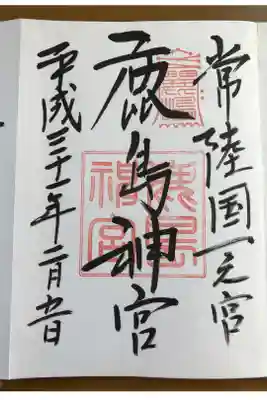 常陸国一之宮
鹿島神宮
鹿島神宮
平成三十一年二月五日